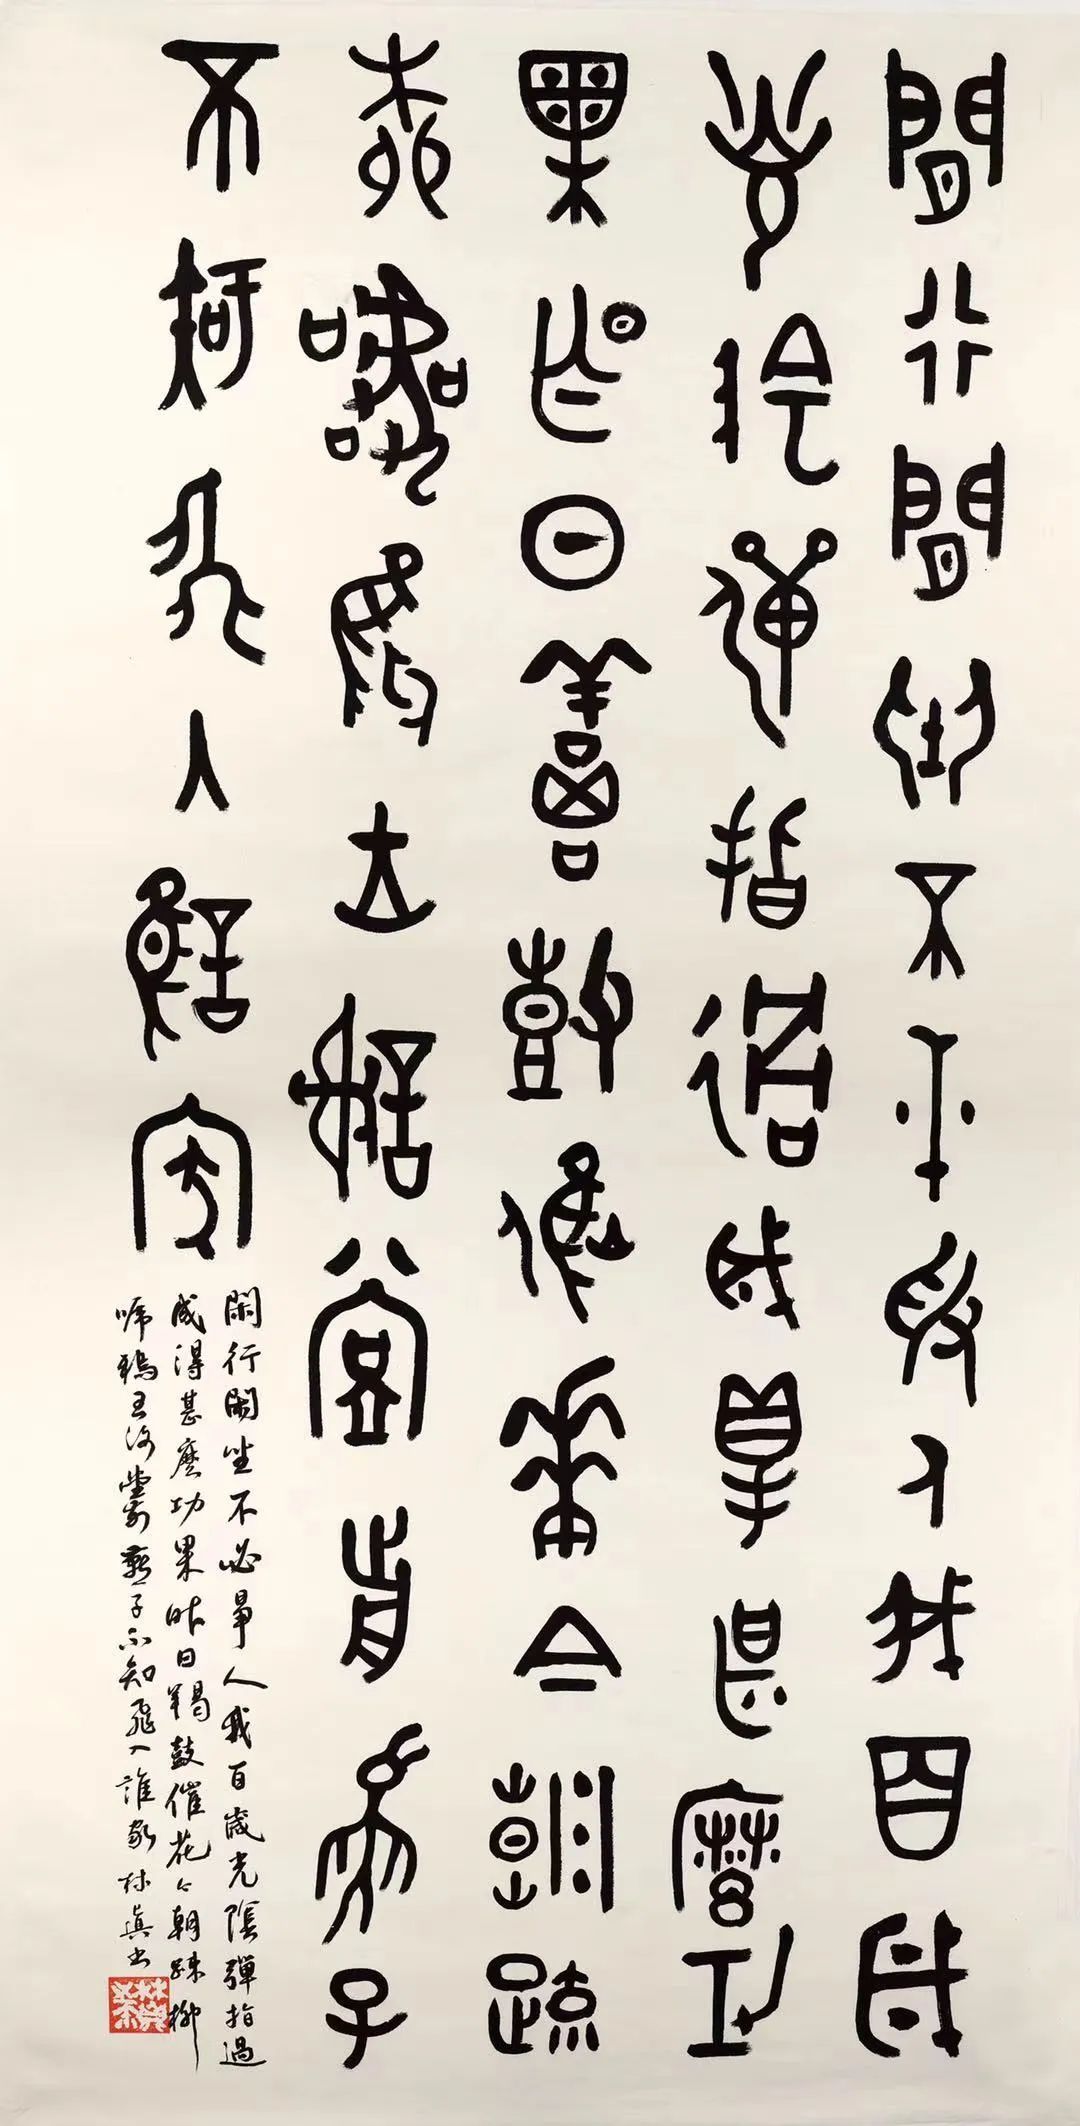 閒行閒坐不必爭人我百歲
光陰彈指過成得甚麼功
果昨日羯鼓催花今朝疏
柳啼鴉王謝堂前燕子
不知飛入誰家
閑行閑坐不必爭人我百歲光陰彈指過
成得甚麼功果昨日羯鼓催花今朝疎柳
啼鴉王謝堂前燕子不知飛入誰家 林真書